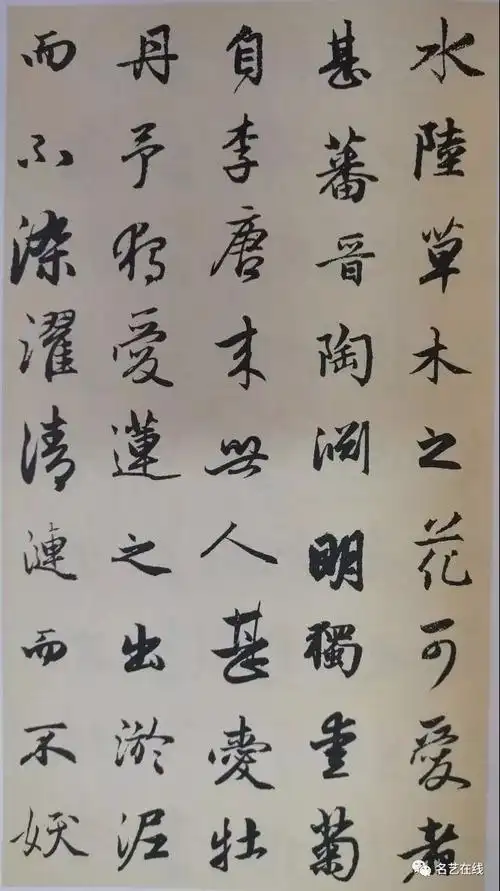 水陸草木之花可愛者
甚蕃晋陶渊明獨愛菊
自李唐来世人甚愛牡
丹予独愛蓮之出淤泥
而不染濯清漣而不妖
名艺在线